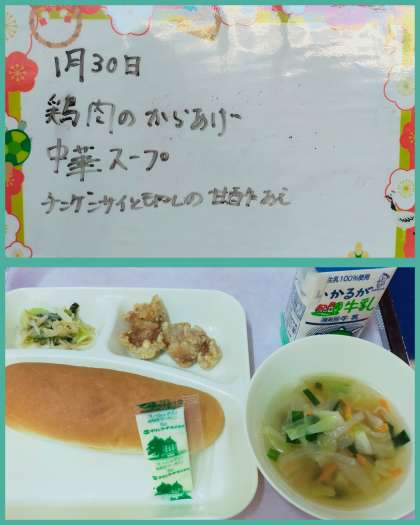 1月30日
鶏肉のからあげ
中華スープ
チンゲンサイともやしの甘酢あえ
生乳100%使用
いかるが
牛乳